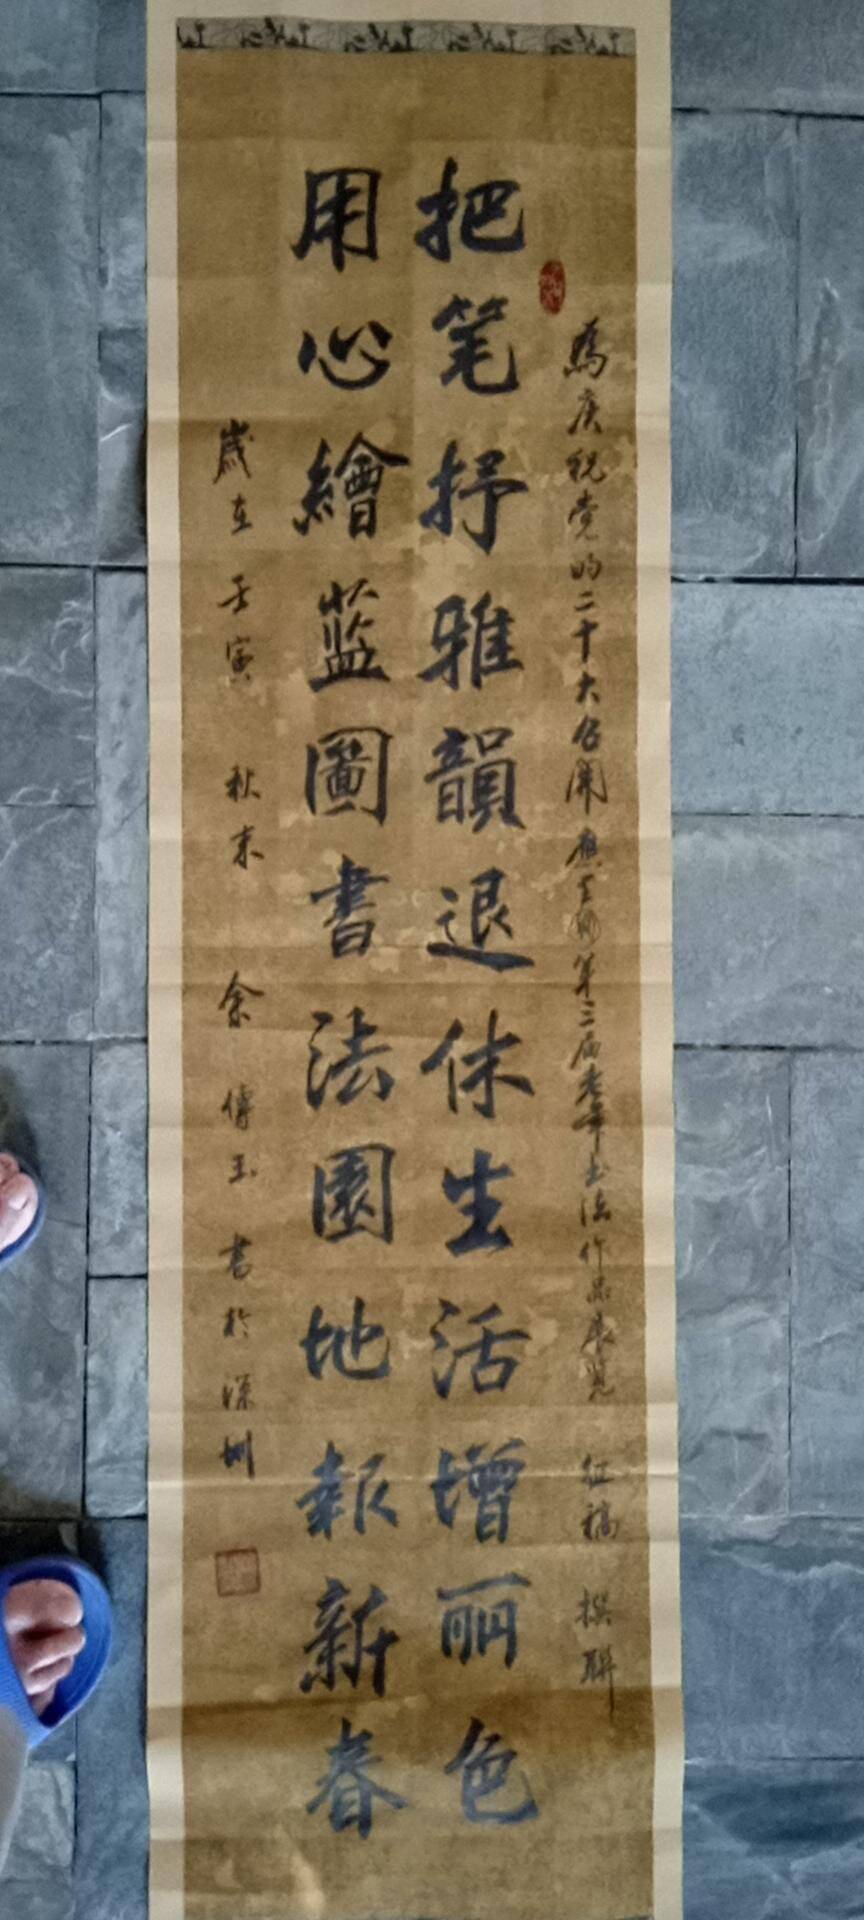 為庆祝党的二十大召开 第三届老年书法作品展览 征稿 撰联
把笔抒雅韻退休生活增丽色
用心繪蓝圖書法園地報新春
歲在壬寅 秋末 余傅玉 書於深圳